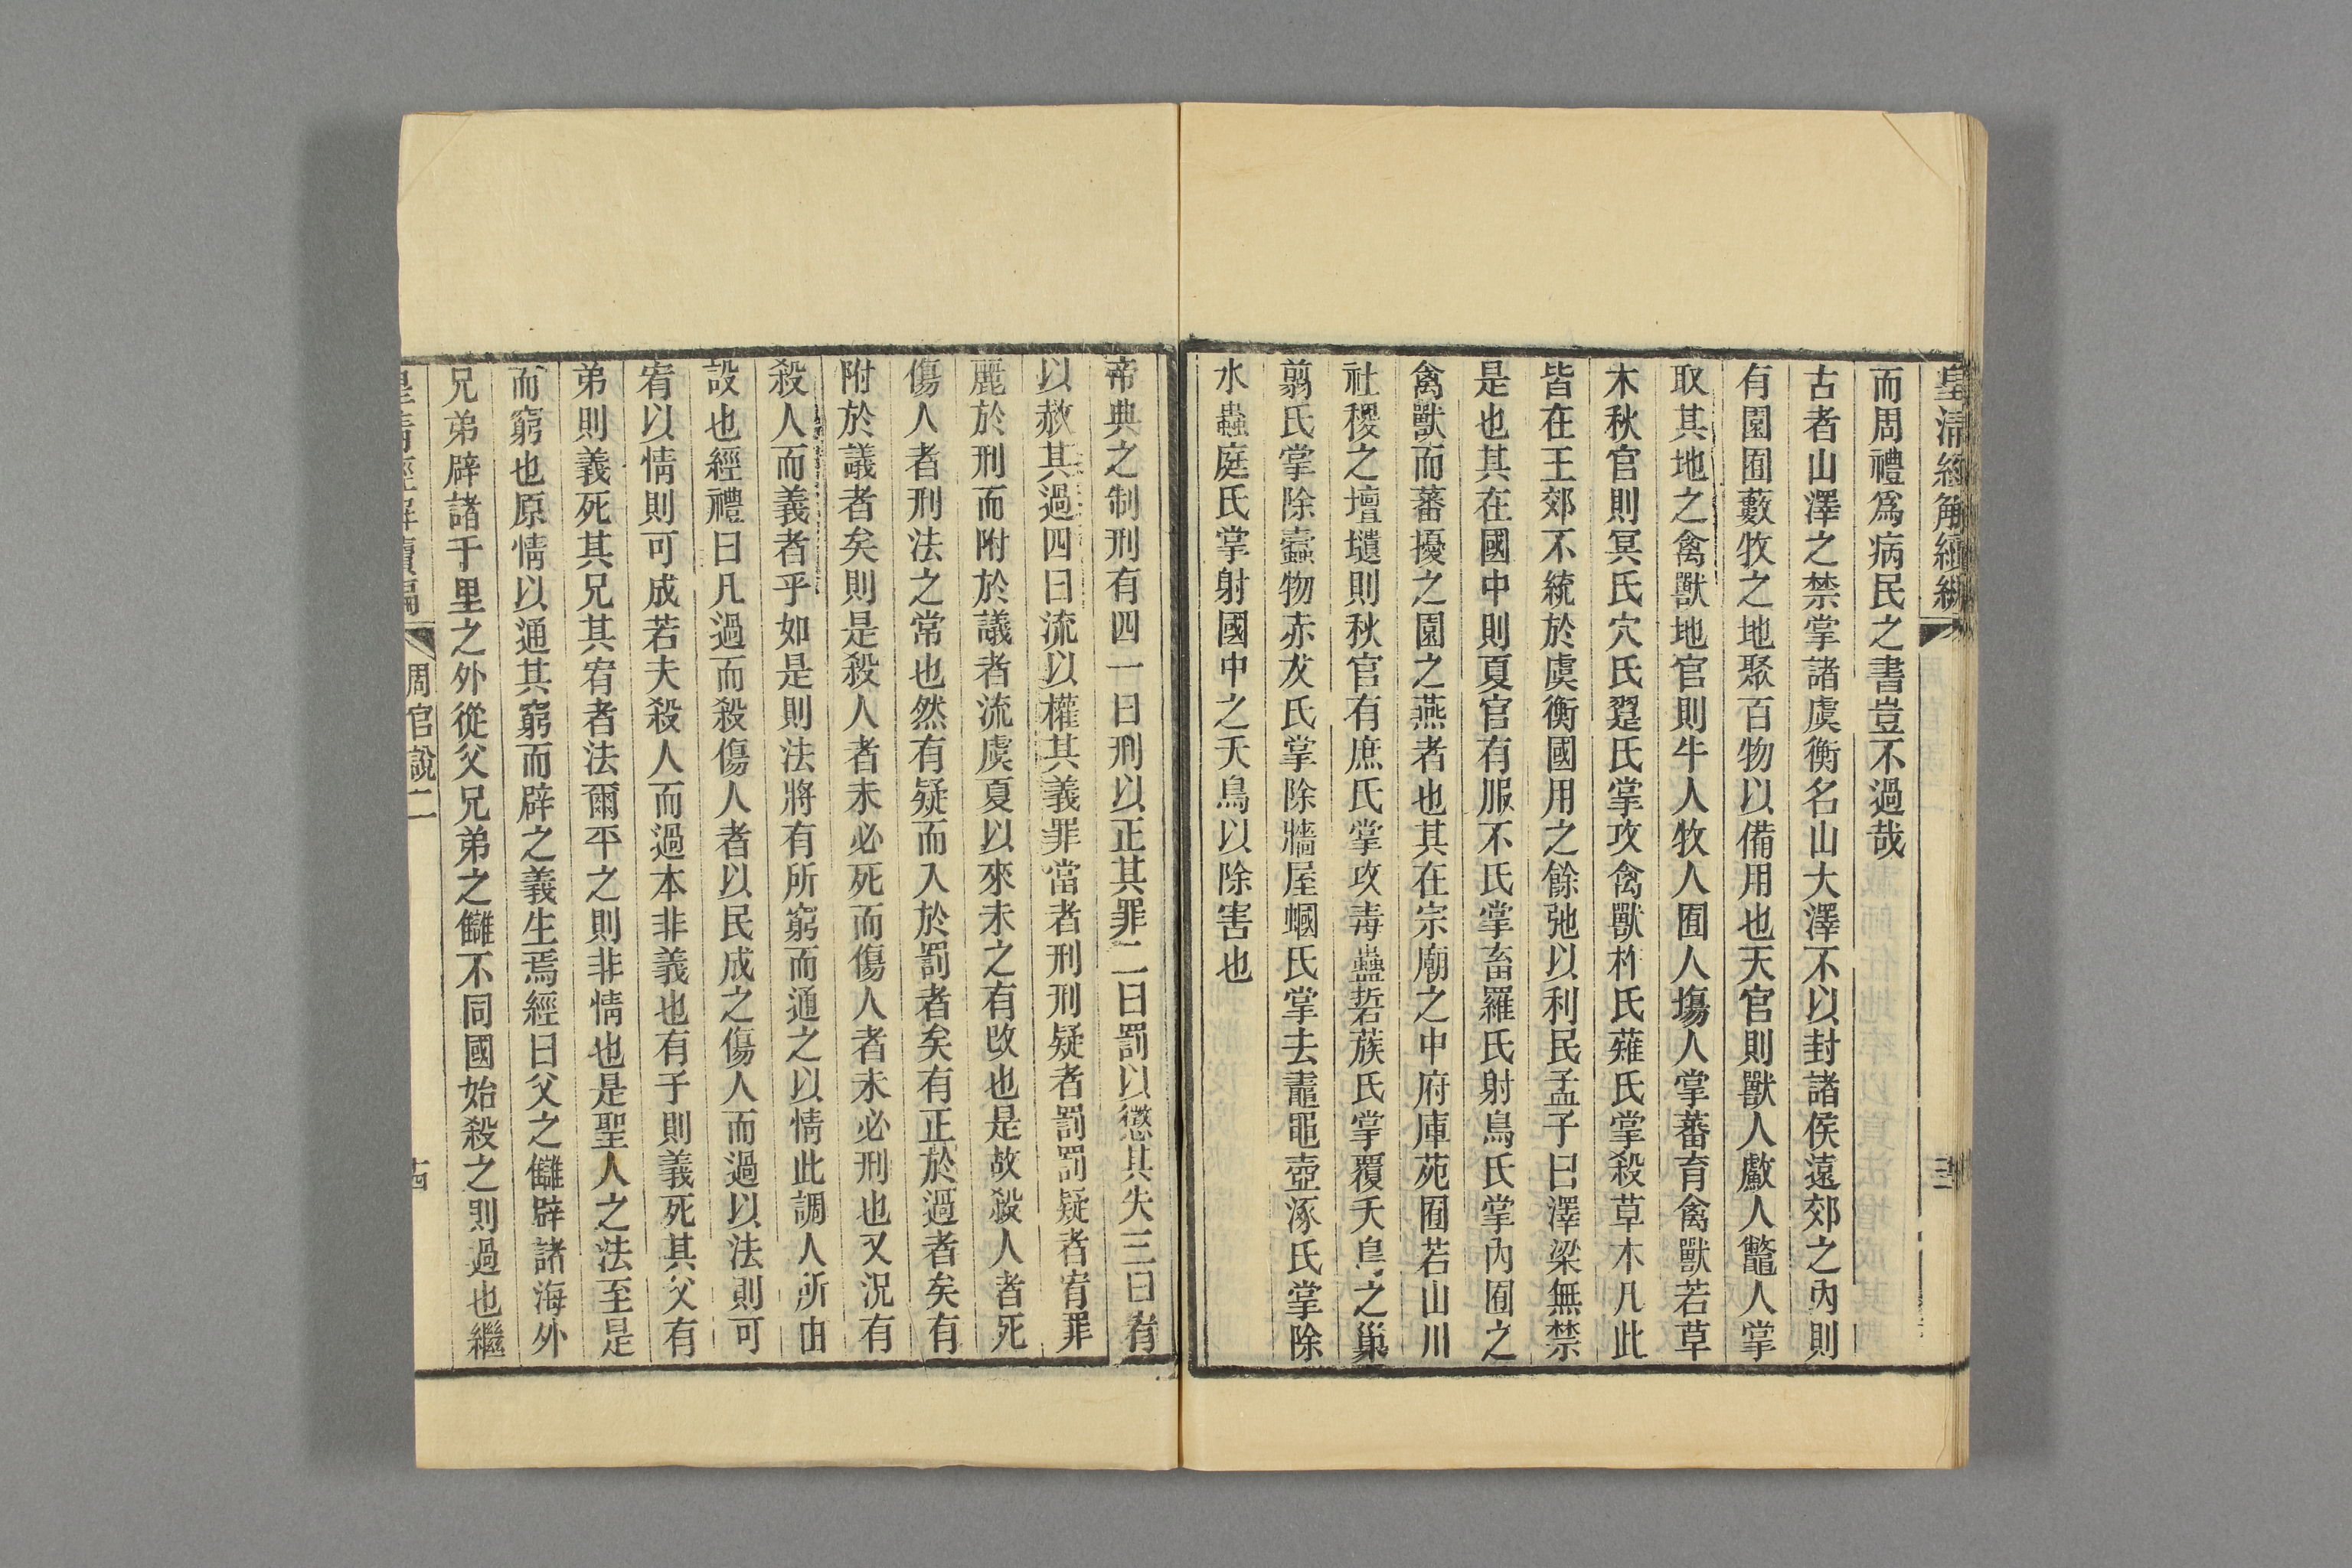 皇清經解續編
而周禮爲病民之書豈不過哉
古者山澤之禁掌諸虞衡名山大澤不以封諸侯遠郊之內則
有園囿藪牧之地聚百物以備用也天官則獸人䱷人鼈人掌
取其地之禽獸地官則牛人牧人囿人場人掌蕃育禽獸若草
木秋官則冥氏穴氏翨氏掌攻禽獸柞氏薙氏掌殺草木凡此
皆在王郊不統於虞衡國用之餘弛以利民孟子曰澤梁無禁
是也其在國中則夏官有服不氏掌畜羅氏射鳥氏掌內囿之
禽獸而蕃擾之園之燕者也其在宗廟之中府庫苑囿若山川
社稷之壇壝則秋官有庶氏掌攻毒蠱硩蔟氏掌覆夭鳥之巢
翦氏掌除蠹物赤犮氏掌除牆屋蟈氏掌去鼃黽壺涿氏掌除
水蟲庭氏掌射國中之夭鳥以除害也
帝典之制刑有四一曰刑以正其罪二曰罰以懲其失三曰宥
以赦其過四曰流以權其義罪當者刑刑疑者罰罰疑者宥罪
麗於刑而附於議者流虞夏以來未之有改也是故殺人者死
傷人者刑法之常也然有疑而入於罰者矣有正於過者矣有
附於議者矣則是殺人者未必死而傷人者未必刑也又況有
殺人而義者乎如是則法將有所窮而通之以情此調人所由
設也經禮曰凡過而殺傷人者以民成之傷人而過以法則可
宥以情則可成若夫殺人而過本非義也有子則義死其父有
弟則義死其兄其宥者法爾平之則非情也是聖人之法至是
而窮也原情以通其窮而辟之義生焉經曰父之讎辟諸海外
兄弟辟諸千里之外從父兄弟之讎不同國始殺之則過也繼
皇清經解續編
周官說二
古